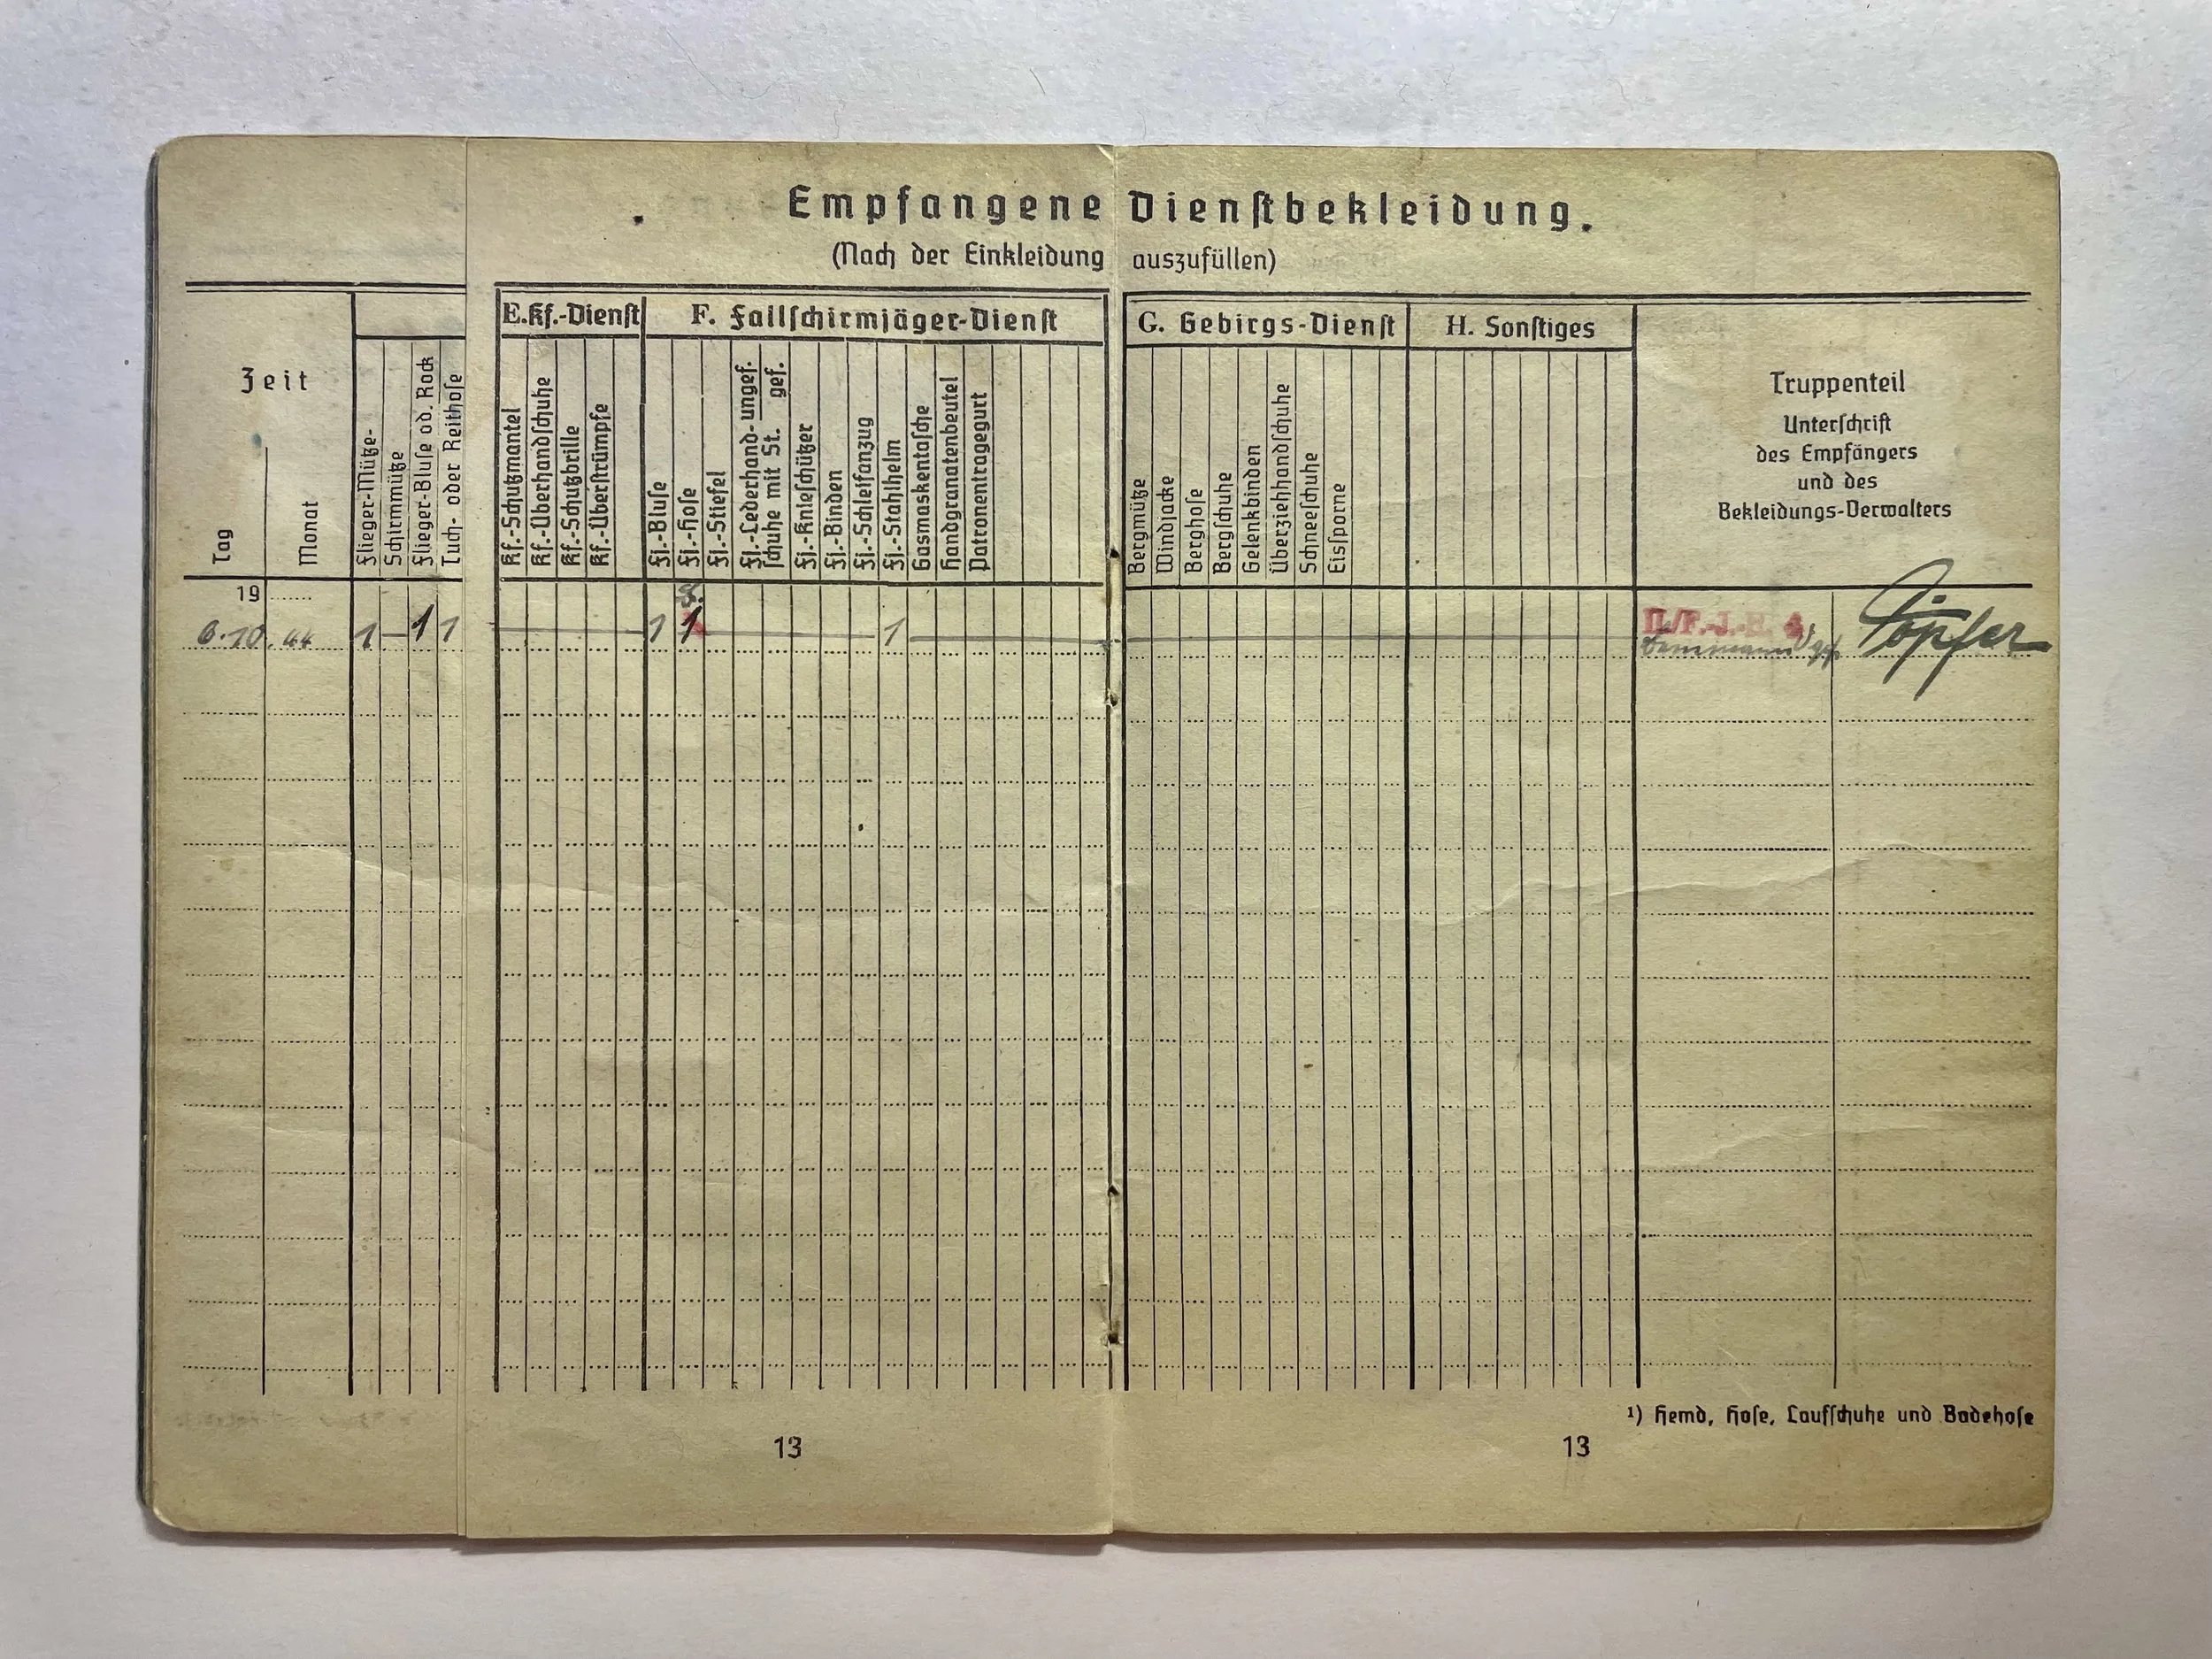 Empfangene Dienstbekleidung.
(Nach der Einkleidung auszufüllen)
Zeit
Tag
Monat
Flieger-Mütze-
Schirmmütze
Flieger-Bluse od. Rock
Tuch- oder Reithose
E. Kf.-Dienst
Kf.-Schutzmantel
Kf.-Überhandschuhe
Kf.-Schutzbrille
Kf.-Überstrümpfe
F. Fallschirmjäger-Dienst
Fj.-Bluse
Fj.-Hose
Fj.-Stiefel
Fj.-Lederhand- ungef.
schuhe mit St. gef.
Fj.-Knieschützer
Fj.-Binden
Fj.-Schleifanzug
Fj.-Stahlhelm
Gasmaskentasche
Handgranatenbeutel
Patronentragegurt
G. Gebirgs-Dienst
Bergmütze
Windjacke
Berghose
Bergschuhe
Gelenkbinden
Überziehhandschuhe
Schneeschuhe
Eissporne
H. Sonstiges
Truppenteil
Unterschrift
des Empfängers
und des
Bekleidungs-Verwalters
19
6.10.44 1 – 1 1 1 1 1 II/F.-J.-R. 4 Töpfer
¹) Hemd, Hose, Laufschuhe und Badehose
13
13